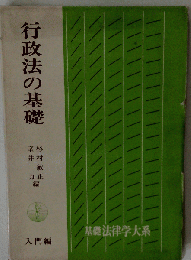 行政法の基礎
杉村敏正
室井力 編
入門編
基礎法律学大系